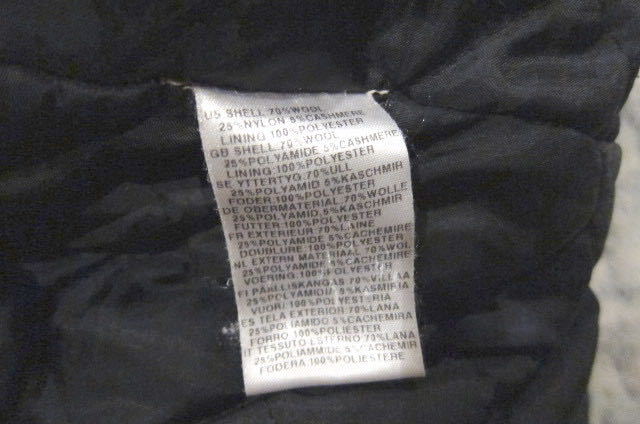 US SHELL 70%WOOL
25%NYLON 5%CASHMERE
LINING 100%POLYESTER
GB SHELL: 70% WOOL
25%POLYAMIDE 5%CASHMERE
LINING:100%POLYESTER
SE YTTERTYG:70%ULL
25%POLYAMID 5%KASCHMIR
FODER:100%POLYESTER
DE OBERMATERIAL:70%WOLLE
25%POLYAMID,5%KASCHMIR
FUTTER:100%POLYESTER
FR EXTERIEUR 70%LAINE
25%POLYAMIDE 5%CACHEMIRE
DOUBLURE 100%POLYESTER
NL EXTERN MATERIAAL 70%WOL
25%POLYAMIDE 5%CACHEMIR
VOERING 100%POLYESTER
FI PÄHLLISKANGAS 70%VILLAA
25%POLYAMIDI 5%KASMIRIA
VUORI 100%POLYESTERIA
ES TELA EXTERIOR:70%LANA
25%POLIAMIDO 5%CACHEMIRA
FORRO 100%POLIESTER
IT TESSUTO ESTERNO 70%LANA
25%POLIAMMIDE 5%CACHEMIR
FODERA 100%POLIESTERE